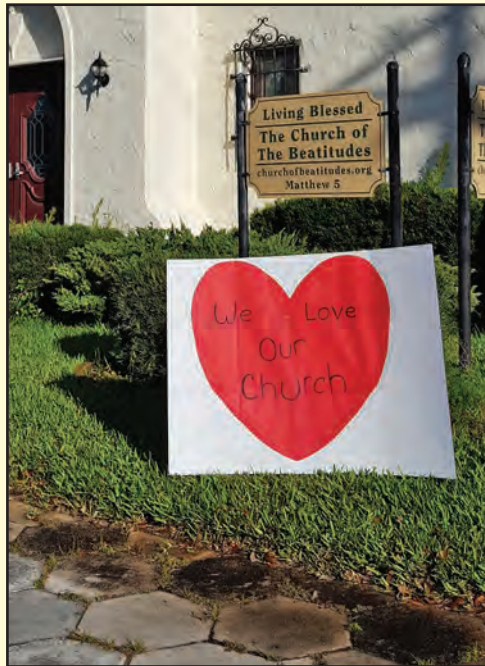 Living Blessed
The Church of
The Beatitudes
churchofbeatitudes.org
Matthew 5
We Love
Our
Church